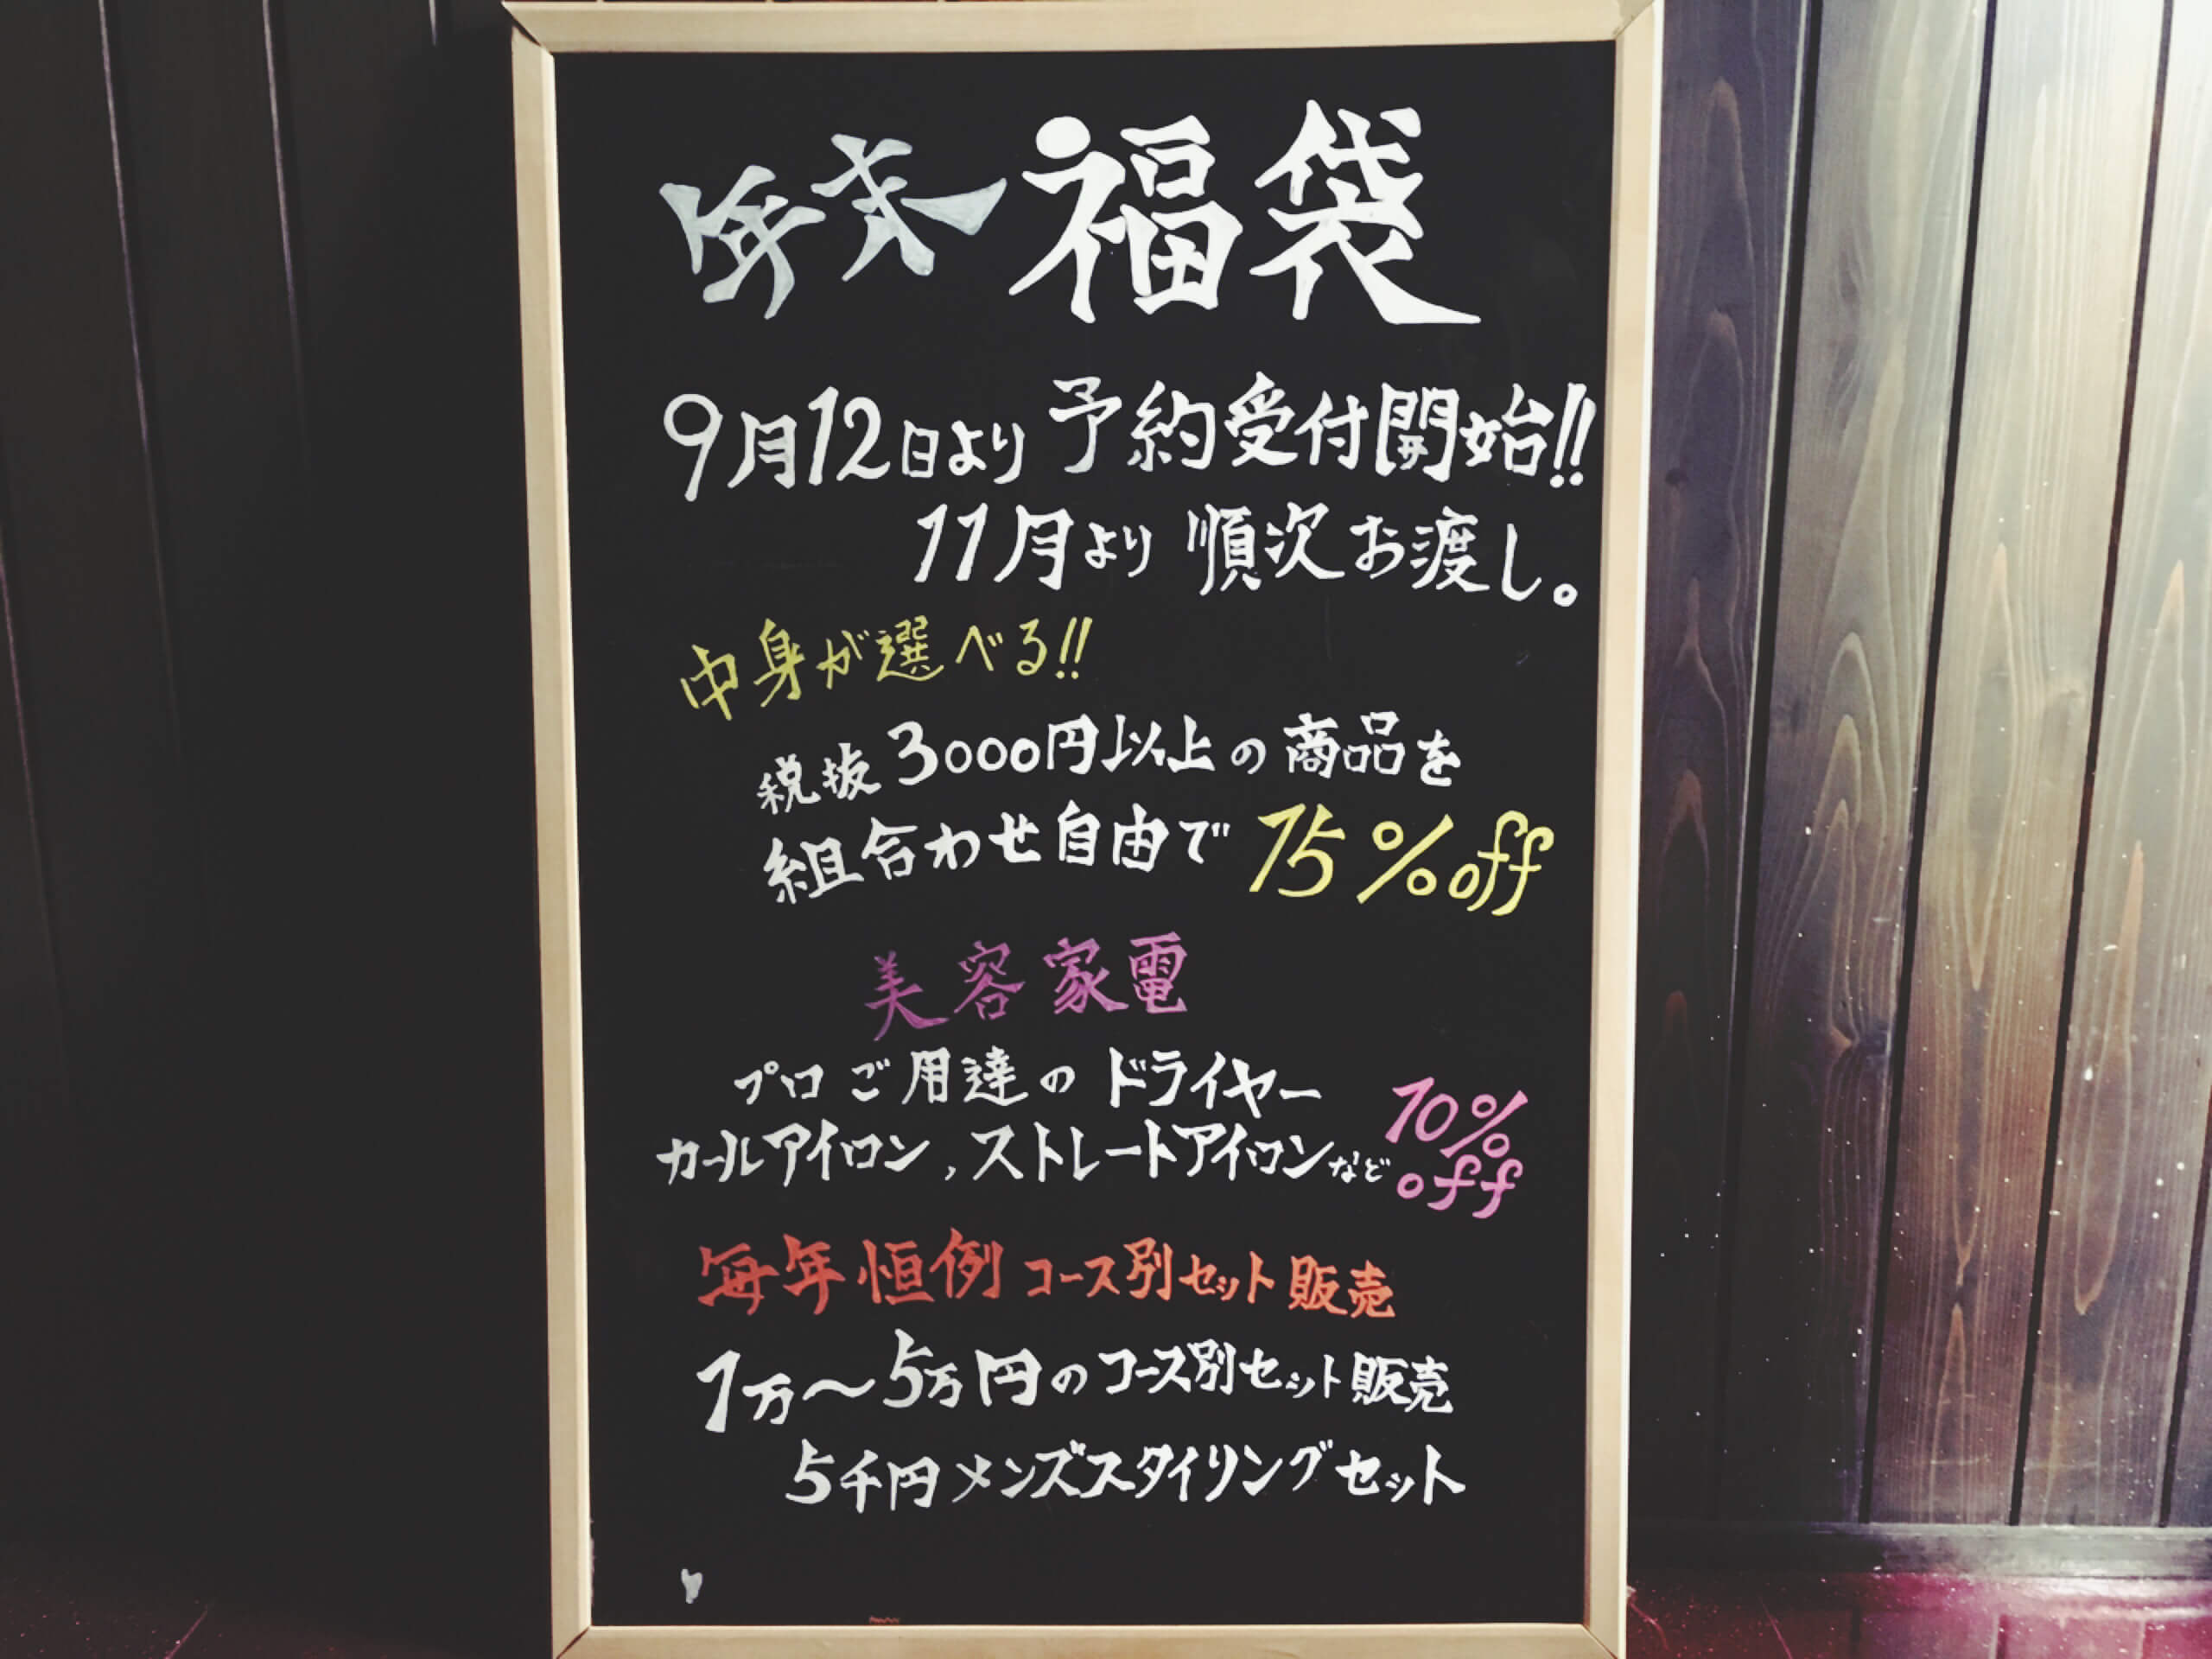 年末福袋
9月12日より予約受付開始!!
11月より 順次お渡し。
中身が選べる!!
税抜3000円以上の商品を
組合わせ自由で 15%off
美容家電
プロご用達のドライヤー
カールアイロン,ストレートアイロンなど
10%
off
毎年恒例コース別セット販売
1万〜5万円のコース別セット販売
5千円メンズスタイリングセット